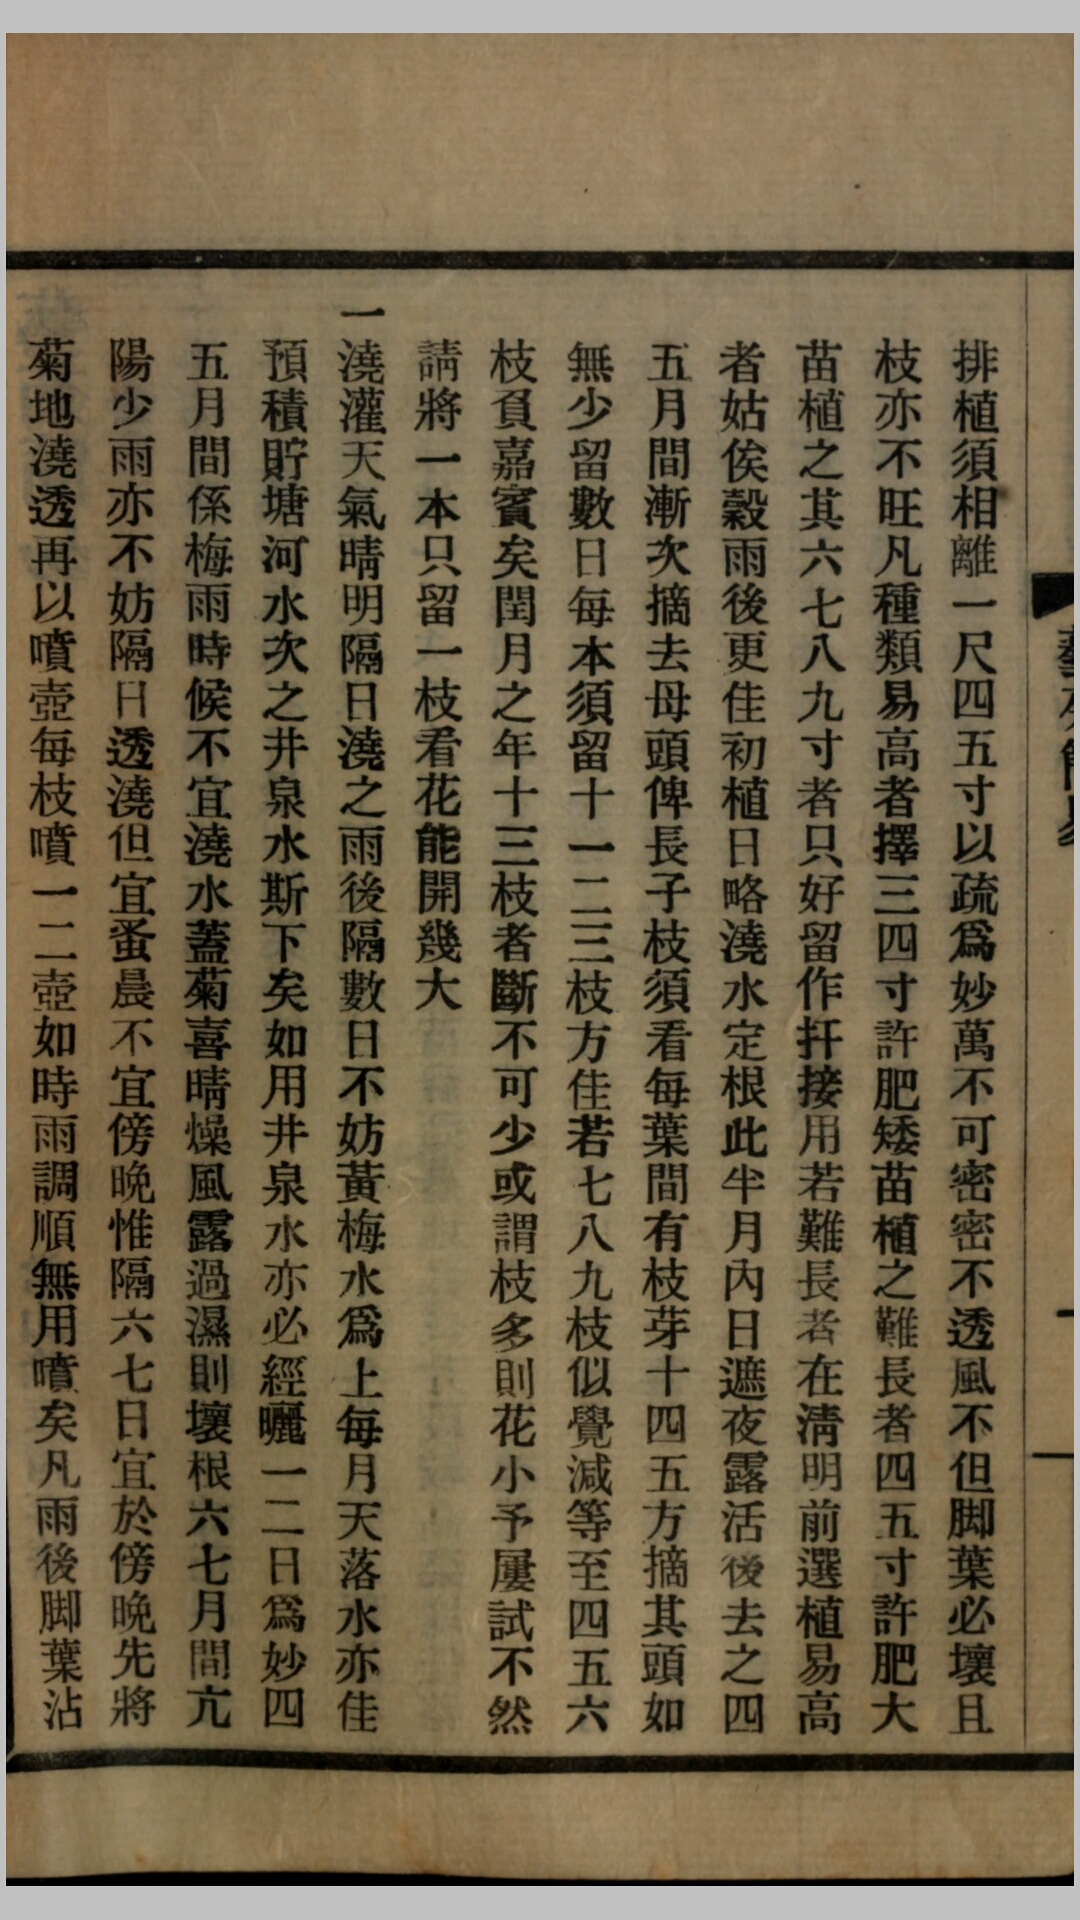 排植須相離一尺四五寸以疏爲妙萬不可密密不透風不但脚葉必壞且
枝亦不旺凡種類易高者擇三四寸許肥矮苗植之難長者四五寸許肥大
苗植之其六七八九寸者只好留作扦接用若難長者在淸明前選植易高
者姑俟穀雨後更佳初植日略澆水定根此半月內日遮夜露活後去之四
五月間漸次摘去母頭俾長子枝須看每葉間有枝芽十四五方摘其頭如
無少留數日每本須留十一二三枝方佳若七八九枝似覺減等至四五六
枝負嘉賓矣閏月之年十三枝者斷不可少或謂枝多則花小予屢試不然
請將一本只留一枝看花能開幾大
一澆灌天氣晴明隔日澆之雨後隔數日不妨黃梅水爲上每月天落水亦佳
預積貯塘河水次之井泉水斯下矣如用井泉水亦必經曬一二日爲妙四
五月間係梅雨時候不宜澆水蓋菊喜晴燥風露過濕則壞根六七月間亢
陽少雨亦不妨隔日透澆但宜蚤晨不宜傍晚惟隔六七日宜於傍晚先將
菊地澆透再以噴壺每枝噴一二壺如時雨調順無用噴矣凡雨後脚葉沾